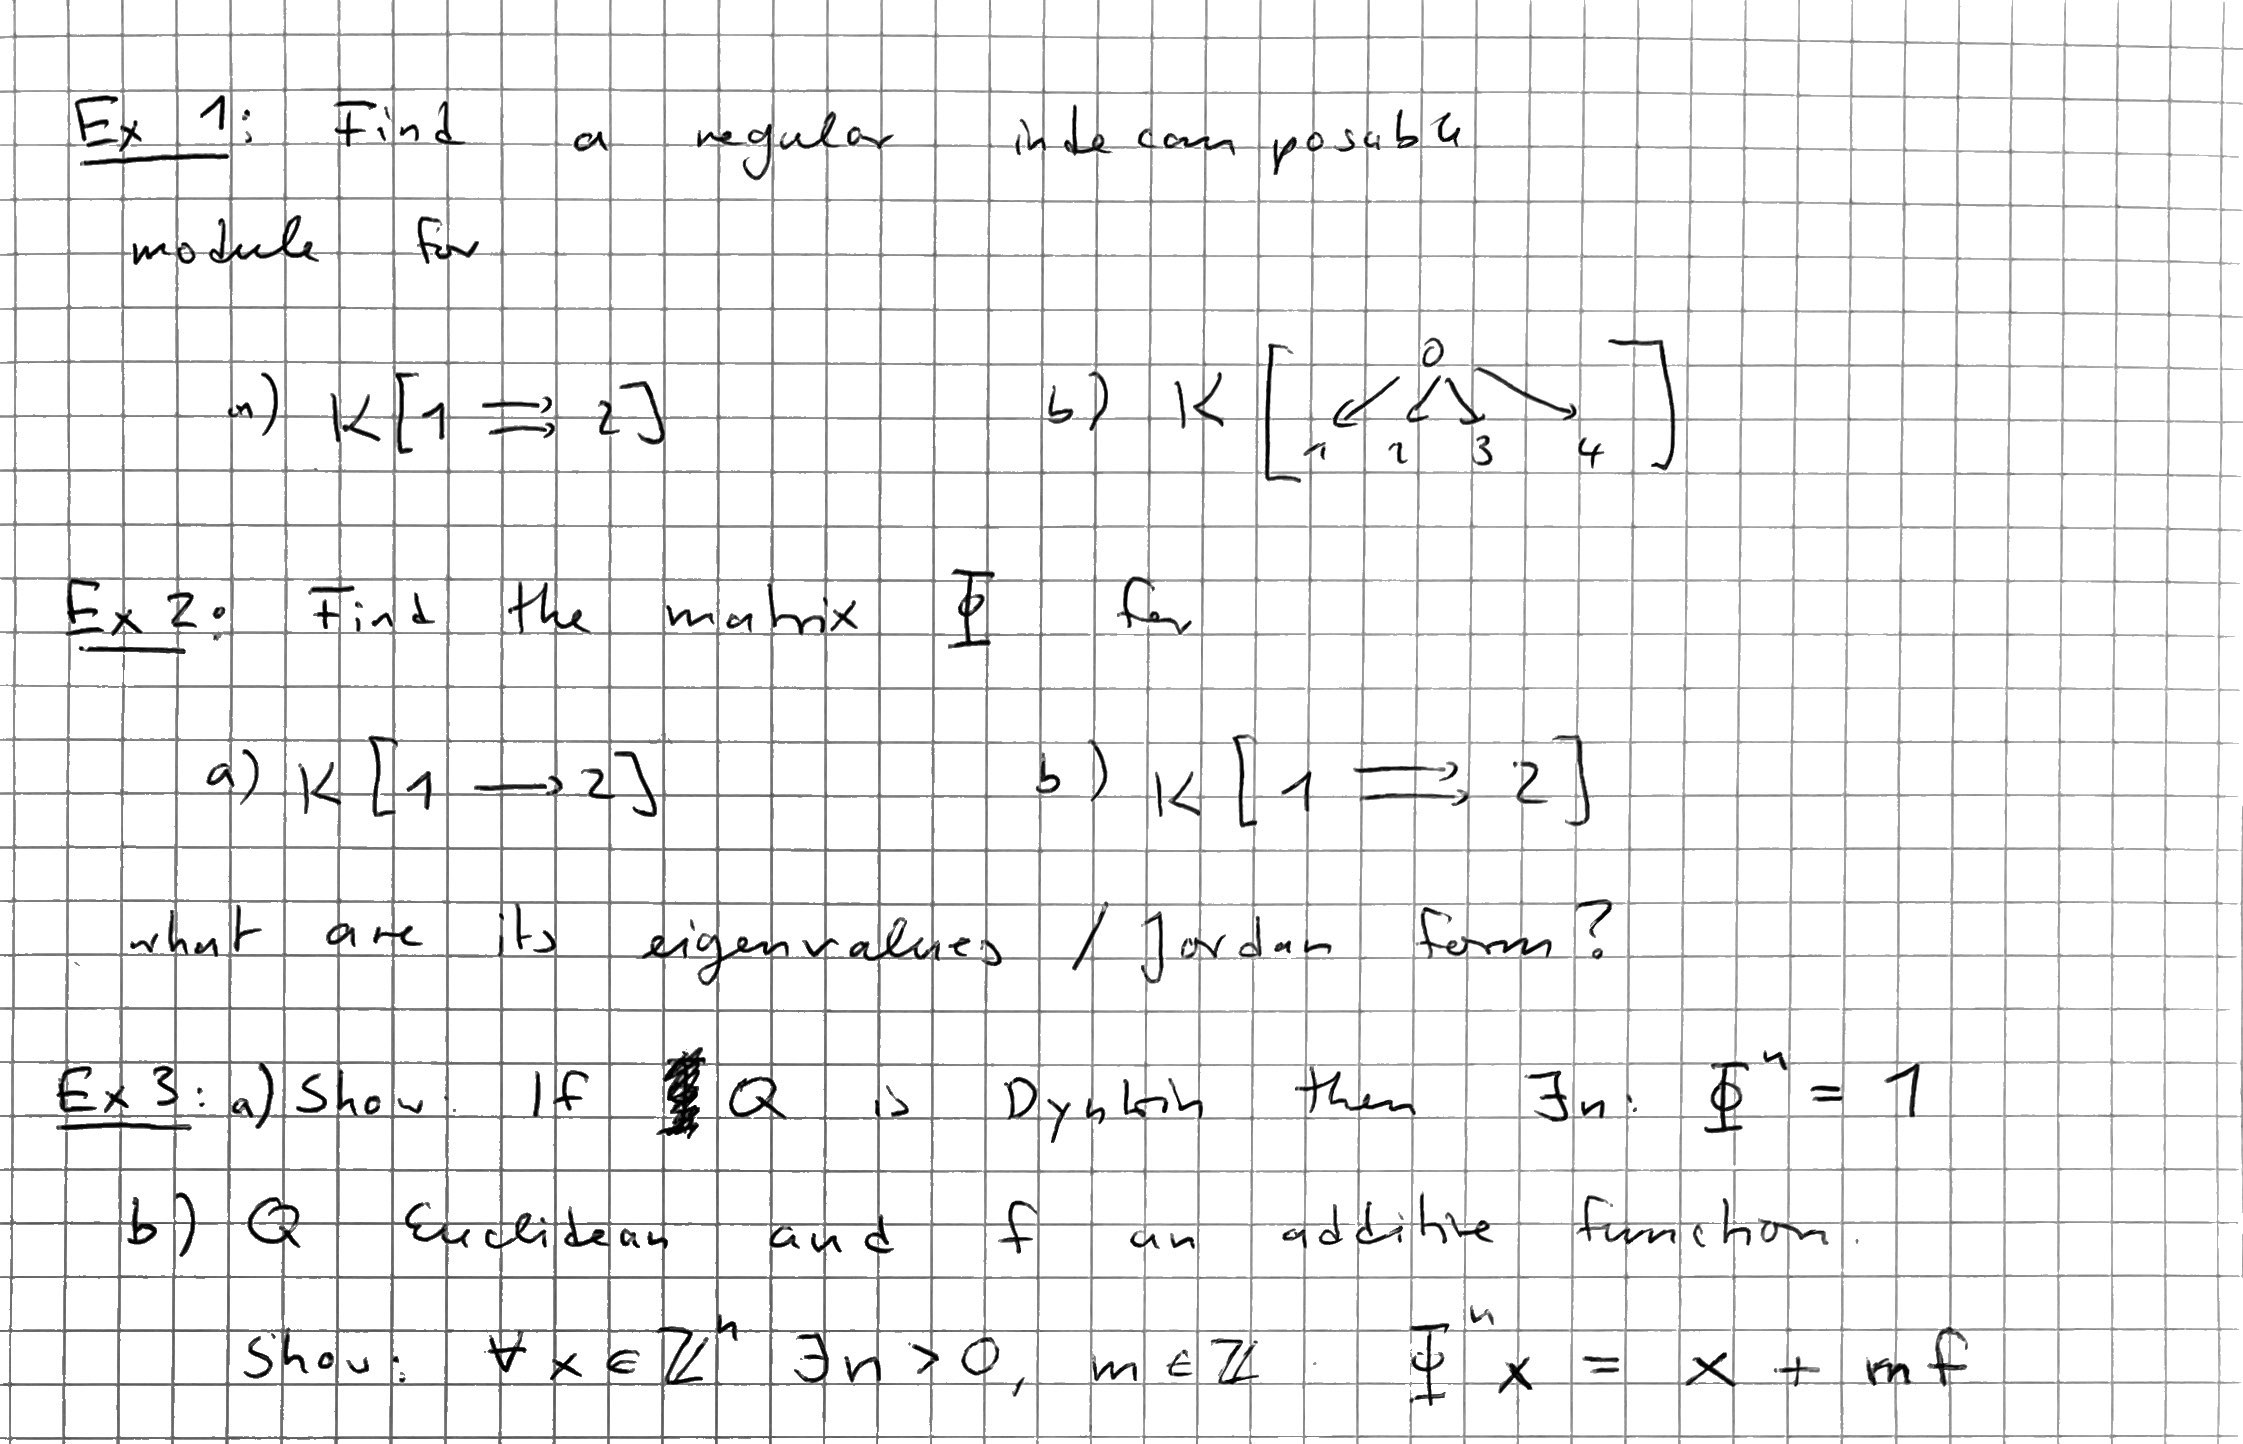 Ex 1: Find a regular indecomposable
module for
a) K[1 ⇉ 2] b) K[0 ↙ ↙ ↘ ↘ 1 2 3 4]
Ex 2: Find the matrix Φ for
a) K[1 → 2] b) K[1 ⇉ 2]
what are its eigenvalues / Jordan form?
Ex 3: a) Show: If Q is Dynkin then ∃n: Φⁿ = 1
b) Q Euclidean and f an additive function.
Show: ∀ x ∈ ℤⁿ ∃n > 0, m ∈ ℤ : Φⁿ x = x + m f